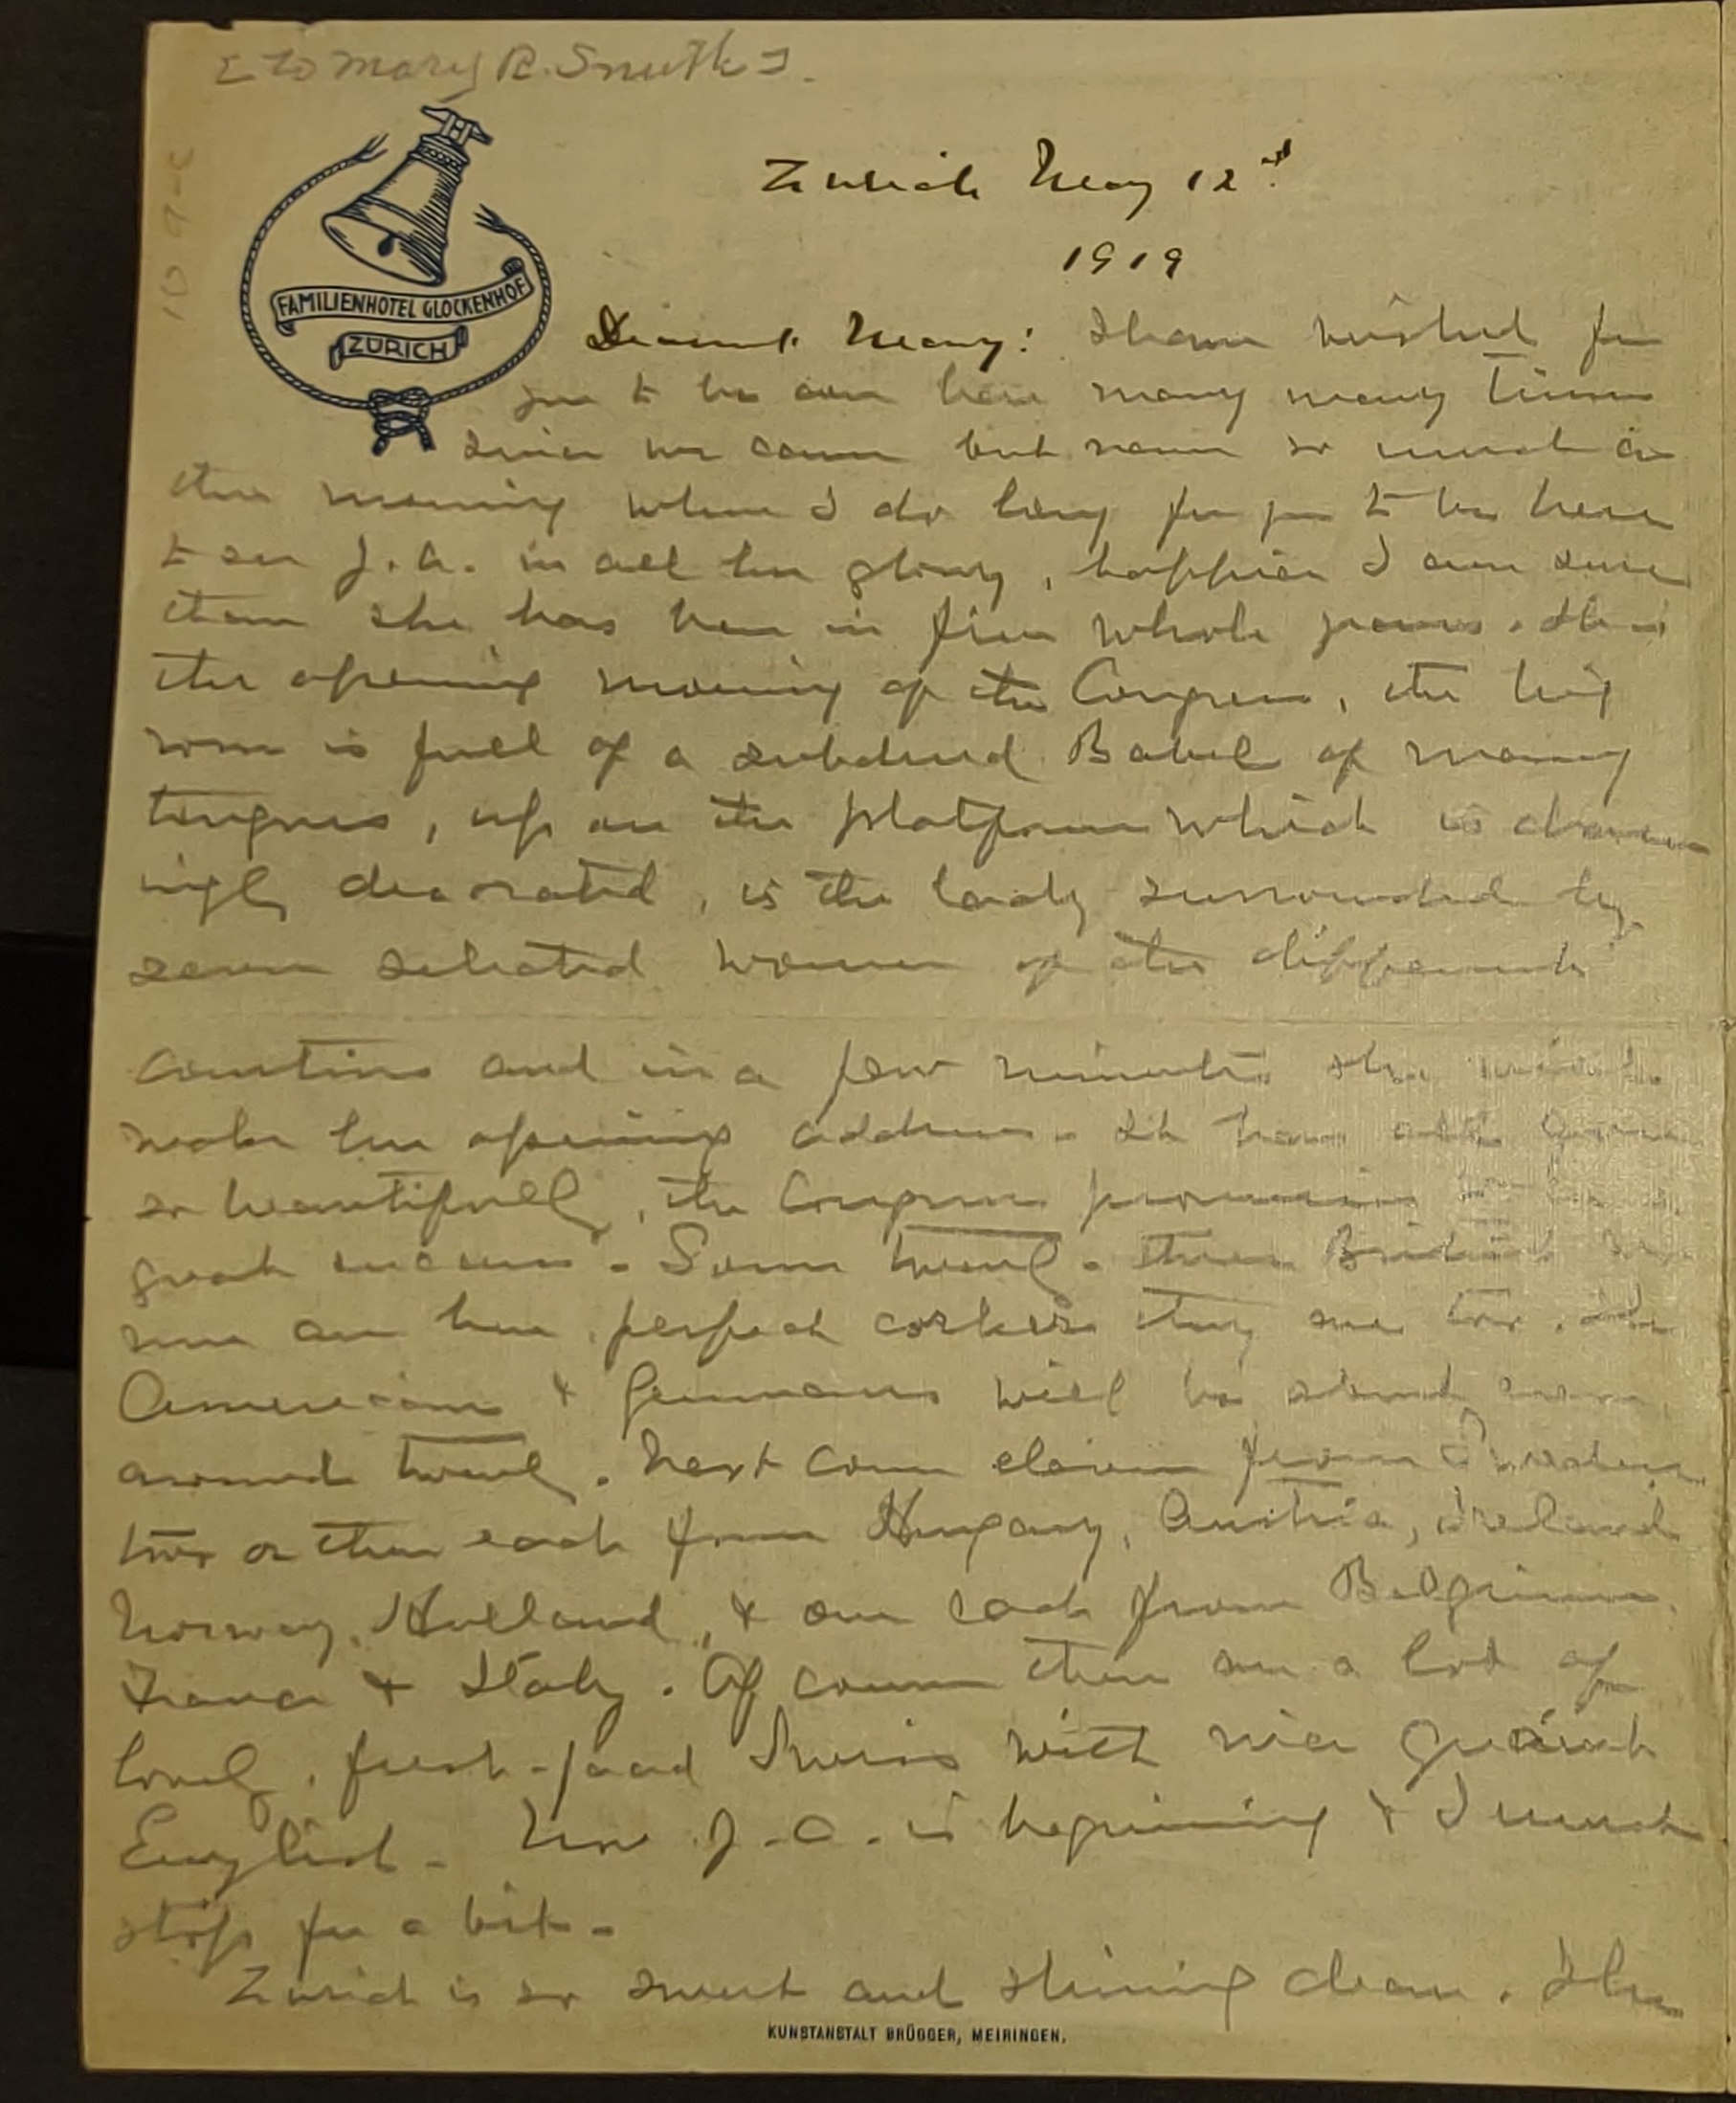 [to Mary R. Smith].
Zurich May 12th
1919
FAMILIENHOTEL GLOCKENHOF
ZÜRICH
Dearest Mary: I have wished for
you to be over here many many times
since we came but never so much as
this morning when I do long for you to be here
to see J.A. in all her glory, happier I am sure
than she has been in five whole years. It is
the opening morning of the Congress, the big
room is full of a subdued Babel of many
tongues, up on the platform which is charm-
ingly decorated, is the lady surrounded by
seven selected women of the different
countries and in a few minutes she will
make her opening address. It has all gone
so beautifully, the Congress promises to be a
great success. Some twenty-three British
are here, perfect corkers they are too. The
Americans & Germans will be about even,
around twenty. Next come eleven from Sweden
two or three each from Hungary, Austria, Ireland
Norway, Holland, & one each from Belgium,
France & Italy. Of course there are a lot of
lovely, fresh-faced Swiss with nice quaint
English. Now J.A. is beginning & I must
stop for a bit.
Zurich is so sweet and shining clean. The
KUNSTANSTALT BRÜGGER, MEIRINGEN.